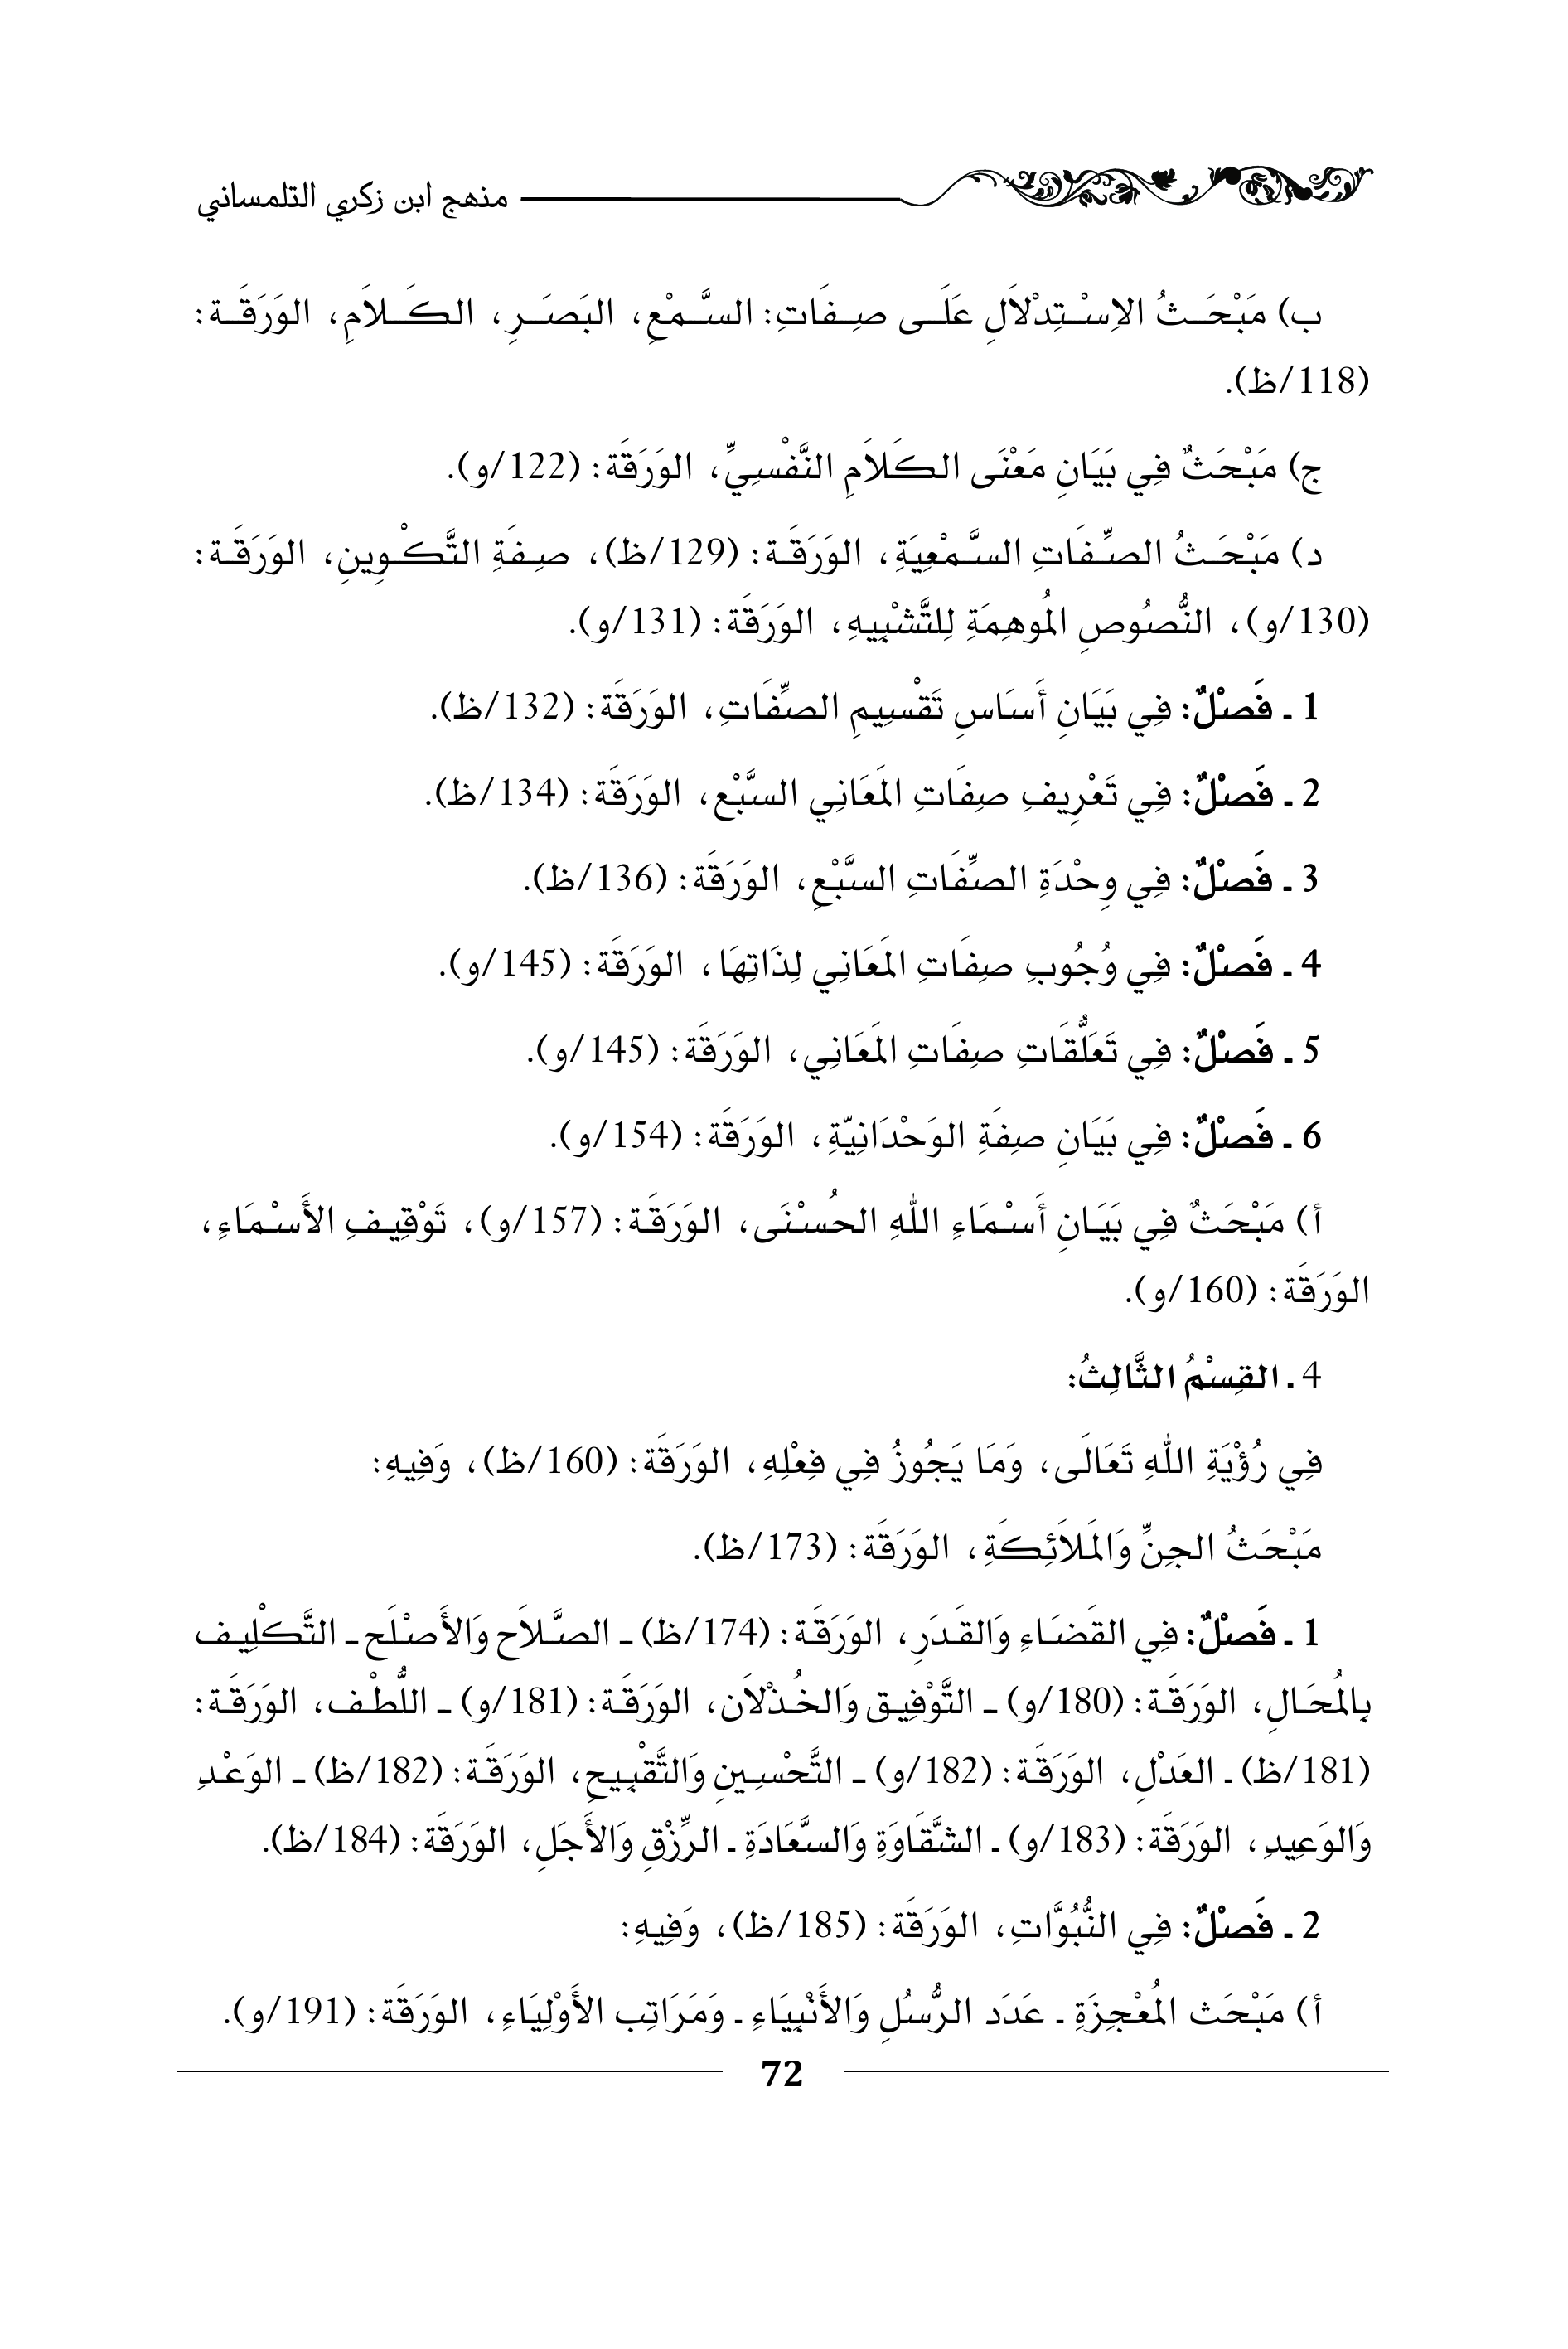 منهج ابن زكري التلمساني
ب) مَبْحَثُ الاِسْتِدْلاَلِ عَلَى صِفَاتِ: السَّمْعِ، البَصَرِ، الكَلاَمِ، الوَرَقَة:
(118/ظ).
ج) مَبْحَثٌ فِي بَيَانِ مَعْنَى الكَلاَمِ النَّفْسِيِّ، الوَرَقَة: (122/و).
د) مَبْحَثُ الصِّفَاتِ السَّمْعِيَةِ، الوَرَقَة: (129/ظ)، صِفَةِ التَّكْوِينِ، الوَرَقَة:
(130/و)، النُّصُوصِ المُوهِمَةِ لِلتَّشْبِيهِ، الوَرَقَة: (131/و).
1 ـ فَصْلٌ: فِي بَيَانِ أَسَاسِ تَقْسِيمِ الصِّفَاتِ، الوَرَقَة: (132/ظ).
2 ـ فَصْلٌ: فِي تَعْرِيفِ صِفَاتِ المَعَانِي السَّبْع، الوَرَقَة: (134/ظ).
3 ـ فَصْلٌ: فِي وِحْدَةِ الصِّفَاتِ السَّبْعِ، الوَرَقَة: (136/ظ).
4 ـ فَصْلٌ: فِي وُجُوبِ صِفَاتِ المَعَانِي لِذَاتِهَا، الوَرَقَة: (145/و).
5 ـ فَصْلٌ: فِي تَعَلُّقَاتِ صِفَاتِ المَعَانِي، الوَرَقَة: (145/و).
6 ـ فَصْلٌ: فِي بَيَانِ صِفَةِ الوَحْدَانِيّةِ، الوَرَقَة: (154/و).
أ) مَبْحَثٌ فِي بَيَانِ أَسْمَاءِ اللهِ الحُسْنَى، الوَرَقَة: (157/و)، تَوْقِيفِ الأَسْمَاءِ،
الوَرَقَة: (160/و).
4 ـ القِسْمُ الثَّالِثُ:
فِي رُؤْيَةِ اللهِ تَعَالَى، وَمَا يَجُوزُ فِي فِعْلِهِ، الوَرَقَة: (160/ظ)، وَفِيهِ:
مَبْحَثُ الجِنِّ وَالمَلاَئِكَةِ، الوَرَقَة: (173/ظ).
1 ـ فَصْلٌ: فِي القَضَاءِ وَالقَدَرِ، الوَرَقَة: (174/ظ) ـ الصَّلاَح وَالأَصْلَح ـ التَّكْلِيف
بِالمُحَالِ، الوَرَقَة: (180/و) ـ التَّوْفِيق وَالخُذْلاَن، الوَرَقَة: (181/و) ـ اللُّطْف، الوَرَقَة:
(181/ظ) ـ العَدْلِ، الوَرَقَة: (182/و) ـ التَّحْسِينِ وَالتَّقْبِيحِ، الوَرَقَة: (182/ظ) ـ الوَعْدِ
وَالوَعِيدِ، الوَرَقَة: (183/و) ـ الشَّقَاوَةِ وَالسَّعَادَةِ ـ الرِّزْقِ وَالأَجَلِ، الوَرَقَة: (184/ظ).
2 ـ فَصْلٌ: فِي النُّبُوَّاتِ، الوَرَقَة: (185/ظ)، وَفِيهِ:
أ) مَبْحَث المُعْجِزَةِ ـ عَدَد الرُّسُلِ وَالأَنْبِيَاءِ ـ وَمَرَاتِب الأَوْلِيَاءِ، الوَرَقَة: (191/و).
72